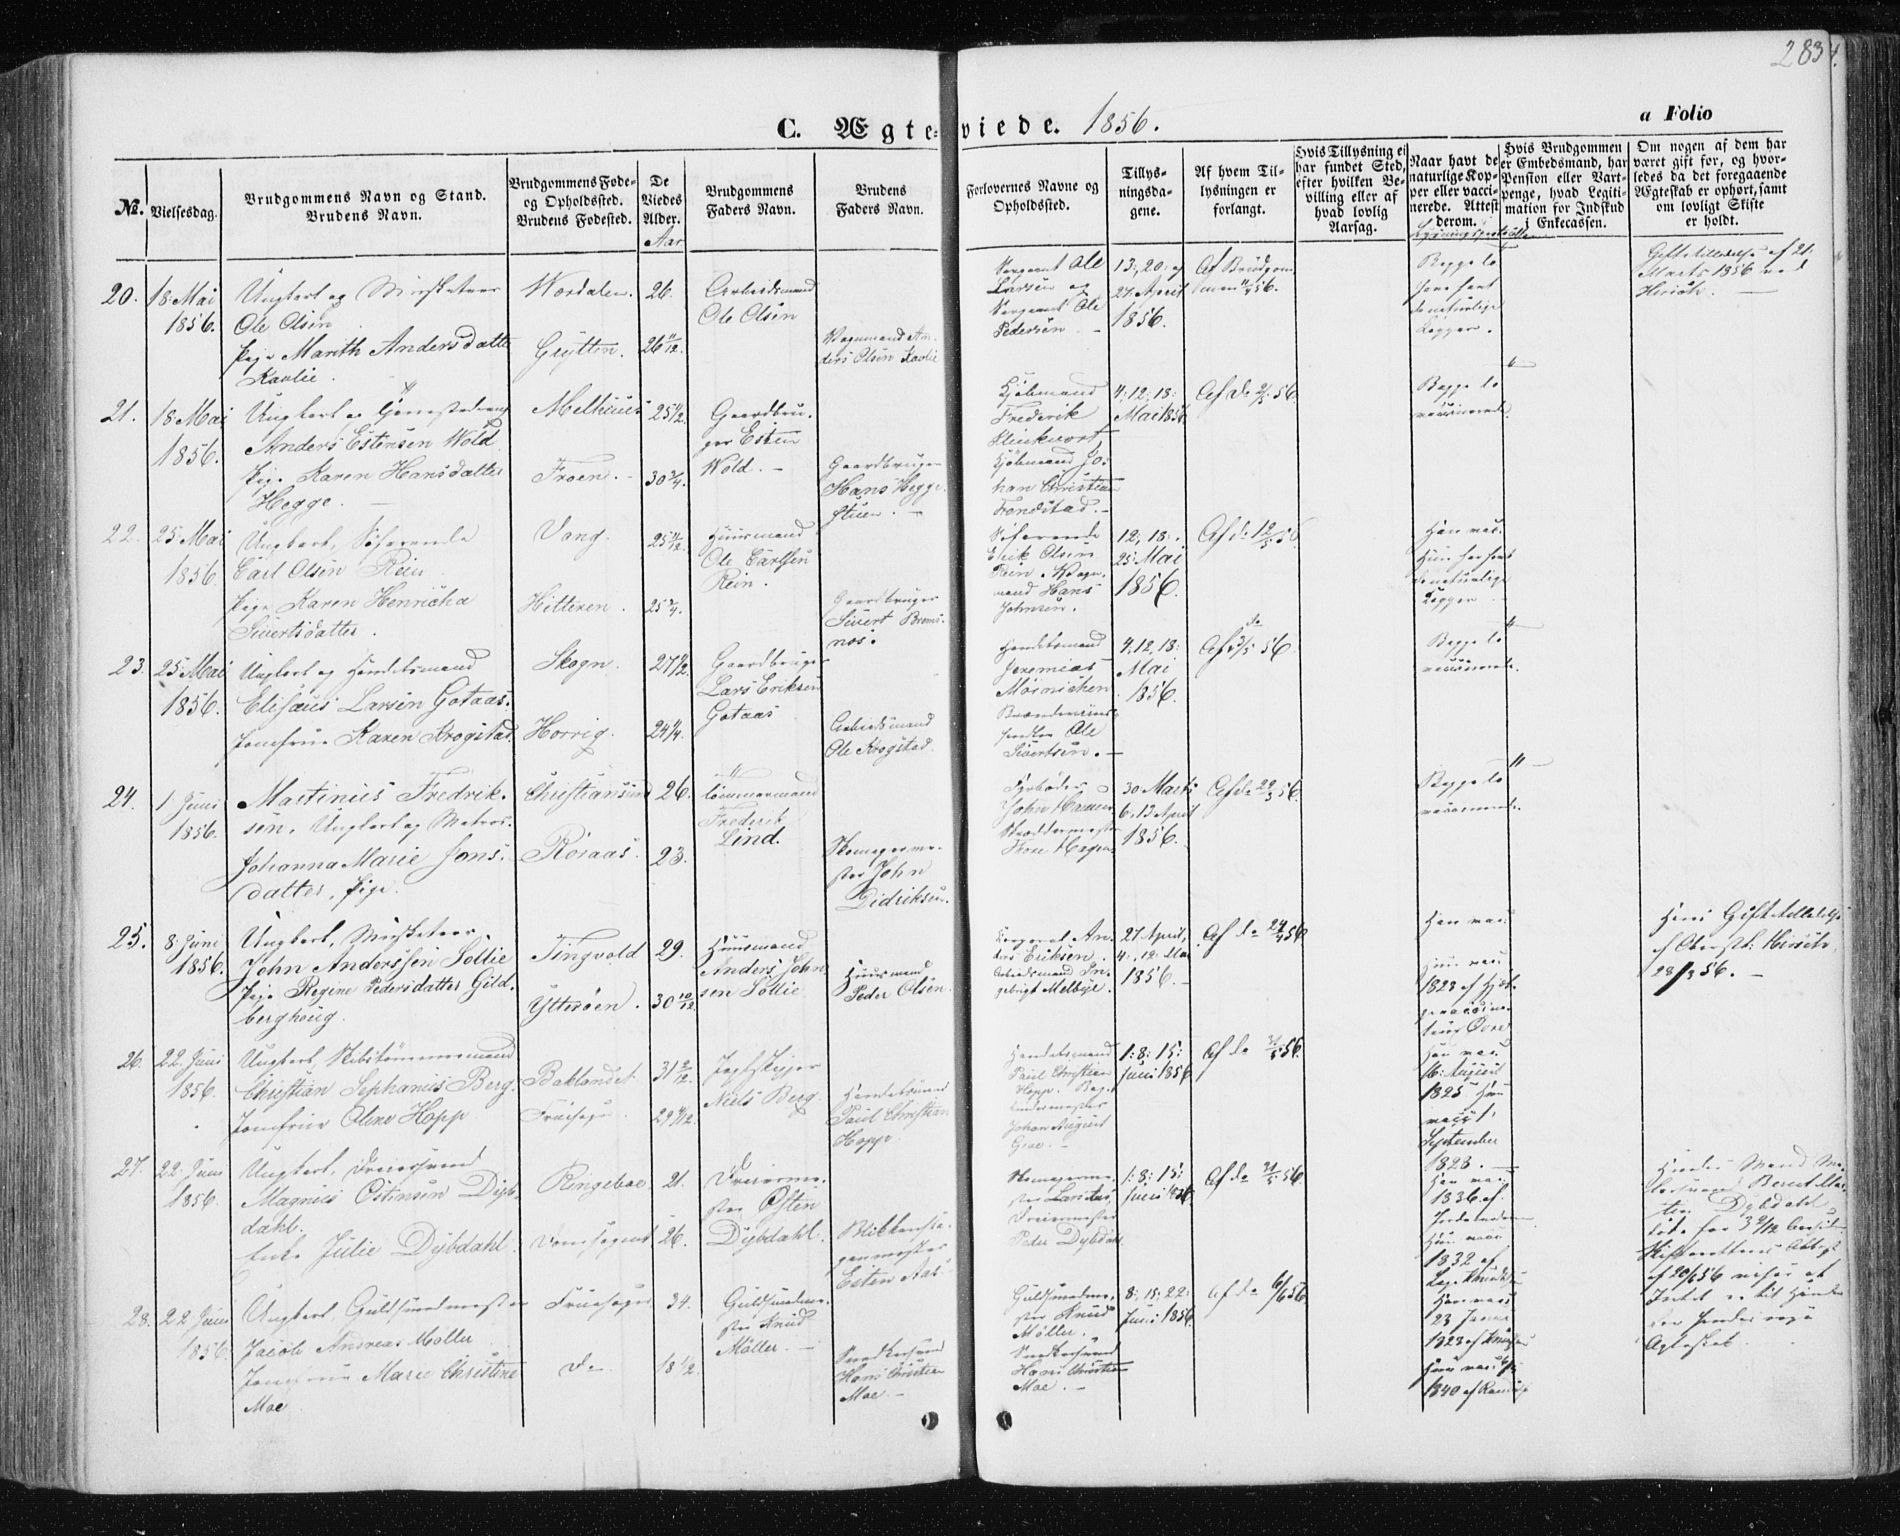 2834.
C. Ægte-viede. 1856.
a Folio
No.
Vielsesdag.
Brudgommens Navn og Stand.
Brudens Navn.
Brudgommens Føde-
og Opholdssted.
Brudens Fødested.
De
Viedes
Alder.
Aar
Brudgommens
Faders Navn.
Brudens
Faders Navn.
Forlovernes Navne og
Opholdssted.
Tillys-
ningsda-
gene.
Af hvem Til-
lysningen er
forlangt.
Hvis Tillysning ei
har fundet Sted,
efter hvilken Be-
villing eller af
hvad lovlig
Aarsag.
Naar havt de
naturlige Kop-
per eller vacci-
nerede. Attest
derom.
Hvis Brudgommen
er Embedsmand, har
Pension eller Vart-
penge, hvad Legiti-
mation for Indskud
i Enkecassen.
Om nogen af dem har
været gift før, og hvor-
ledes da det foregaaende
Ægteskab er ophørt, samt
om lovligt Skifte
er holdt.
20. 18 Mai
1856.
Ungkarl og Musketeer
Ole Olsen
Pige Marith Andersdatter
Kavlie.
Wærdalen. 26.
Grytten. 26 11/12.
Arbeidsmand
Ole Olsen
Bognmand An-
ders Olsen Kavlie
Sergeant Ole
Larsen og
Sergeant Ole
Pedersen.
13, 20 og
27 April
1856.
Af Brudgom-
men 11/4 56.
Begge to
have havt
de naturlige
Kopper.
Giftetilladelse af 21
Marts 1856 ved
Hirsch.
21. 18 Mai
1856.
Ungkarl og Tjenestedreng
Anders Estensen Wold
Pige Karen Hansdatter
Hegge.
Melhuus 25 1/2.
Froen. 30 3/4.
Gaardbru-
ger Esten
Wold.
Gaardbruger
Hans Hegge-
stuen.
Kjøbmand
Frederik
Klinkwort,
Kjøbmand Jo-
han Christian
Frondstad.
4, 12, 18
Mai 1856
Af do 2/5 56.
Begge to
vaccinerede
22. 25 Mai
1856.
Ungkarl, Søfarende
Carl Olsen Rein
Pige Karen Henricha
Sivertsdatter.
Vang.
Hitteren. 25 3/4.
Huusmand
Ole Carlsen
Rein.
Gaardbruger
Sivert Brems-
nes.
Søfarende
Erik Olsen
Rein, Vogn-
mand Hans
Johnsen.
12, 18,
25 Mai
1856.
Af do 12/5 56
Han vac.
Hun har havt
de naturlige
Kopper
23. 25 Mai
1856.
Ungkarl og Handelsmand
Elisæus Larsen Gotaas.
Jomfrue Karen Krogstad.
Skogn. 27 1/2.
Horrig. 24 1/4.
Gaardbruger
Lars Eriksen
Gotaas
Arbeidsmand
Ole Krogstad.
Handelsmand
Jeremias
Møinichen
Brændeviins-
handler Ole
Sivertsen.
4, 12, 18
Mai
1856.
Af do 3/5 56
Begge to
vaccinerede.
24. 1 Juni
1856.
Martinus Fredrik-
sen, Ungkarl og Matros.
Johanna Marie Jons-
datter, Pige.
Christiansund 26.
Røraas. 23.
Tømmermand
Frederik
Lind.
Skomagerme-
ster John
Didriksen.
Fyrbøder
John Kramer
Skræddermester
30 Marts
6, 13 April
1856.
Begge to
vaccinerede
25. 8 Juni
1856.
Ungkarl, Musketeer
John Anderssen Sollie
Pige Regine Pedersdatter Gild-
berghoug.
Tingvold 29.
Ytterøen. 30 10/12
Huusmand
Anders John-
sen Sollie
Huusmand
Peder Olsen.
Korporal An-
ders Eriksen.
Arbeidsmand In-
gebrigt Melbye.
27 April,
4, 12 Mai
1856.
Af do 24/4 56
Han vac.
Hun vac.
1828 af
Hans Giftetilladelse
af Oberst Hirsch
28/3 56.
26. 22 Juni
1856.
Ungkarl, Skibstømmermand
Christian Sephanius Berg.
Jomfrue Oline Hopp
Baklandet 31 2/12
Fruesogn. 29 11/12.
Jagtskipper
Niels Berg.
Handelsmand
Paul Christian
Hopp.
Handelsmand
Paul Christian
Hopp.
Johan August
1: 8: 15:
Juni 1856
Han vac.
16 August
1825 Hun
vac. 1
September
1828.
27. 22 Juni
1856.
Ungkarl, Dreiersvend
Magnus Østensen Dyb-
dahl.
Enke Julie Dybdahl.
Ringeboe 21.
Domsognet 26.
Dreierme-
ster Østen
Dybdahl.
Blikkensla-
germester
Esten Aas.
Skomagerme-
ster
Dreiermester
Peder Dybdahl
1: 8: 15:
Juni 1856
Han vac.
1836 af
Hun vac.
1832 af
Hendes Mand
Dybdahl
døde for 3 9/12 Aar siden
Skifterettens Attest
af 20/6 56 viser at
Intet er til Hinder
for hendes nye
Ægteskab.
28. 22 Juni
1856.
Ungkarl, Guldsmedmester
Jacob Andreas Møller
Jomfrue Marie Christine
Moe
Fruesogn 34.
Do 18 1/2.
Guldsmedme-
ster Knud
Møller.
Snedkersvend
Hans Christian
Moe.
Guldsmedme-
ster Knud
Møller.
Snedkersvend
Hans Christian
Moe.
8, 15, 22
Juni 1856.
Af do 6/6 56
Han vac.
23 Januar
1823 af
Hun vac.
1840 af